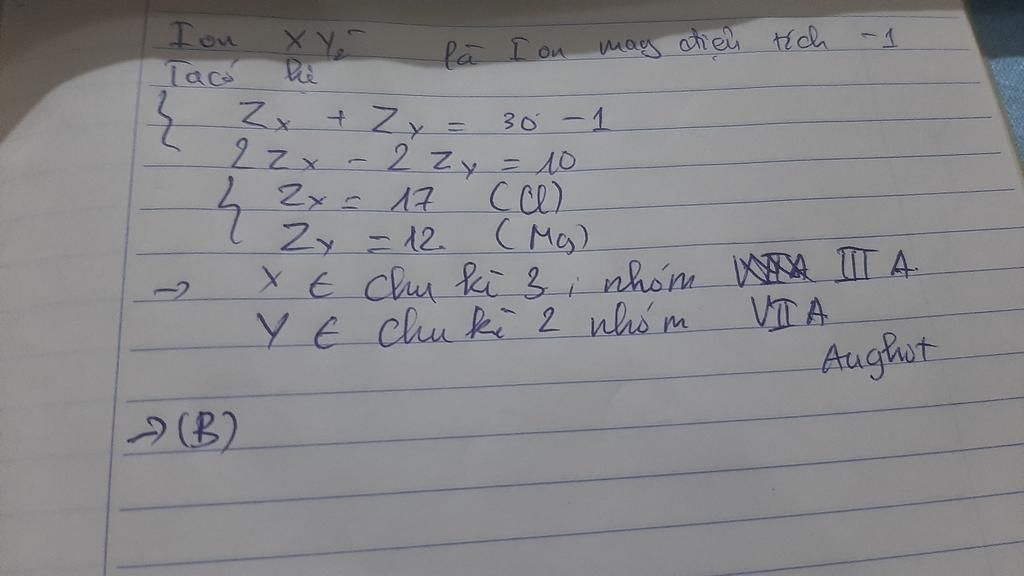 Ion XY₂⁻ là Ion mag điện tích -1
Ta có hệ
Zx + Zy = 30 - 1
2Zx - 2Zy = 10
Zx = 17 (Cl)
Zy = 12 (Mg)
→ X ∈ chu kì 3, nhóm III A
Y ∈ chu kì 2 nhóm VII A
Aughot
→ (B)